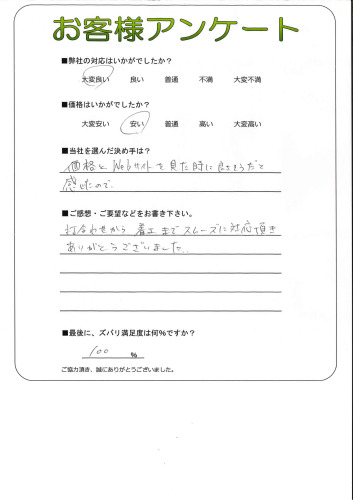 お客様アンケート
■弊社の対応はいかがでしたか？
大変良い 良い 普通 不満 大変不満
■価格はいかがでしたか？
大変安い 安い 普通 高い 大変高い
■当社を選んだ決め手は？
価格と Webサイトを見た時に良さそうだと
感じたので。
■ご感想・ご要望などをお書き下さい。
打合わせから 着工までスムーズに対応頂き
ありがとうございました。
■最後に、ズバリ満足度は何%ですか？
100 %
ご協力頂き、誠にありがとうございました。